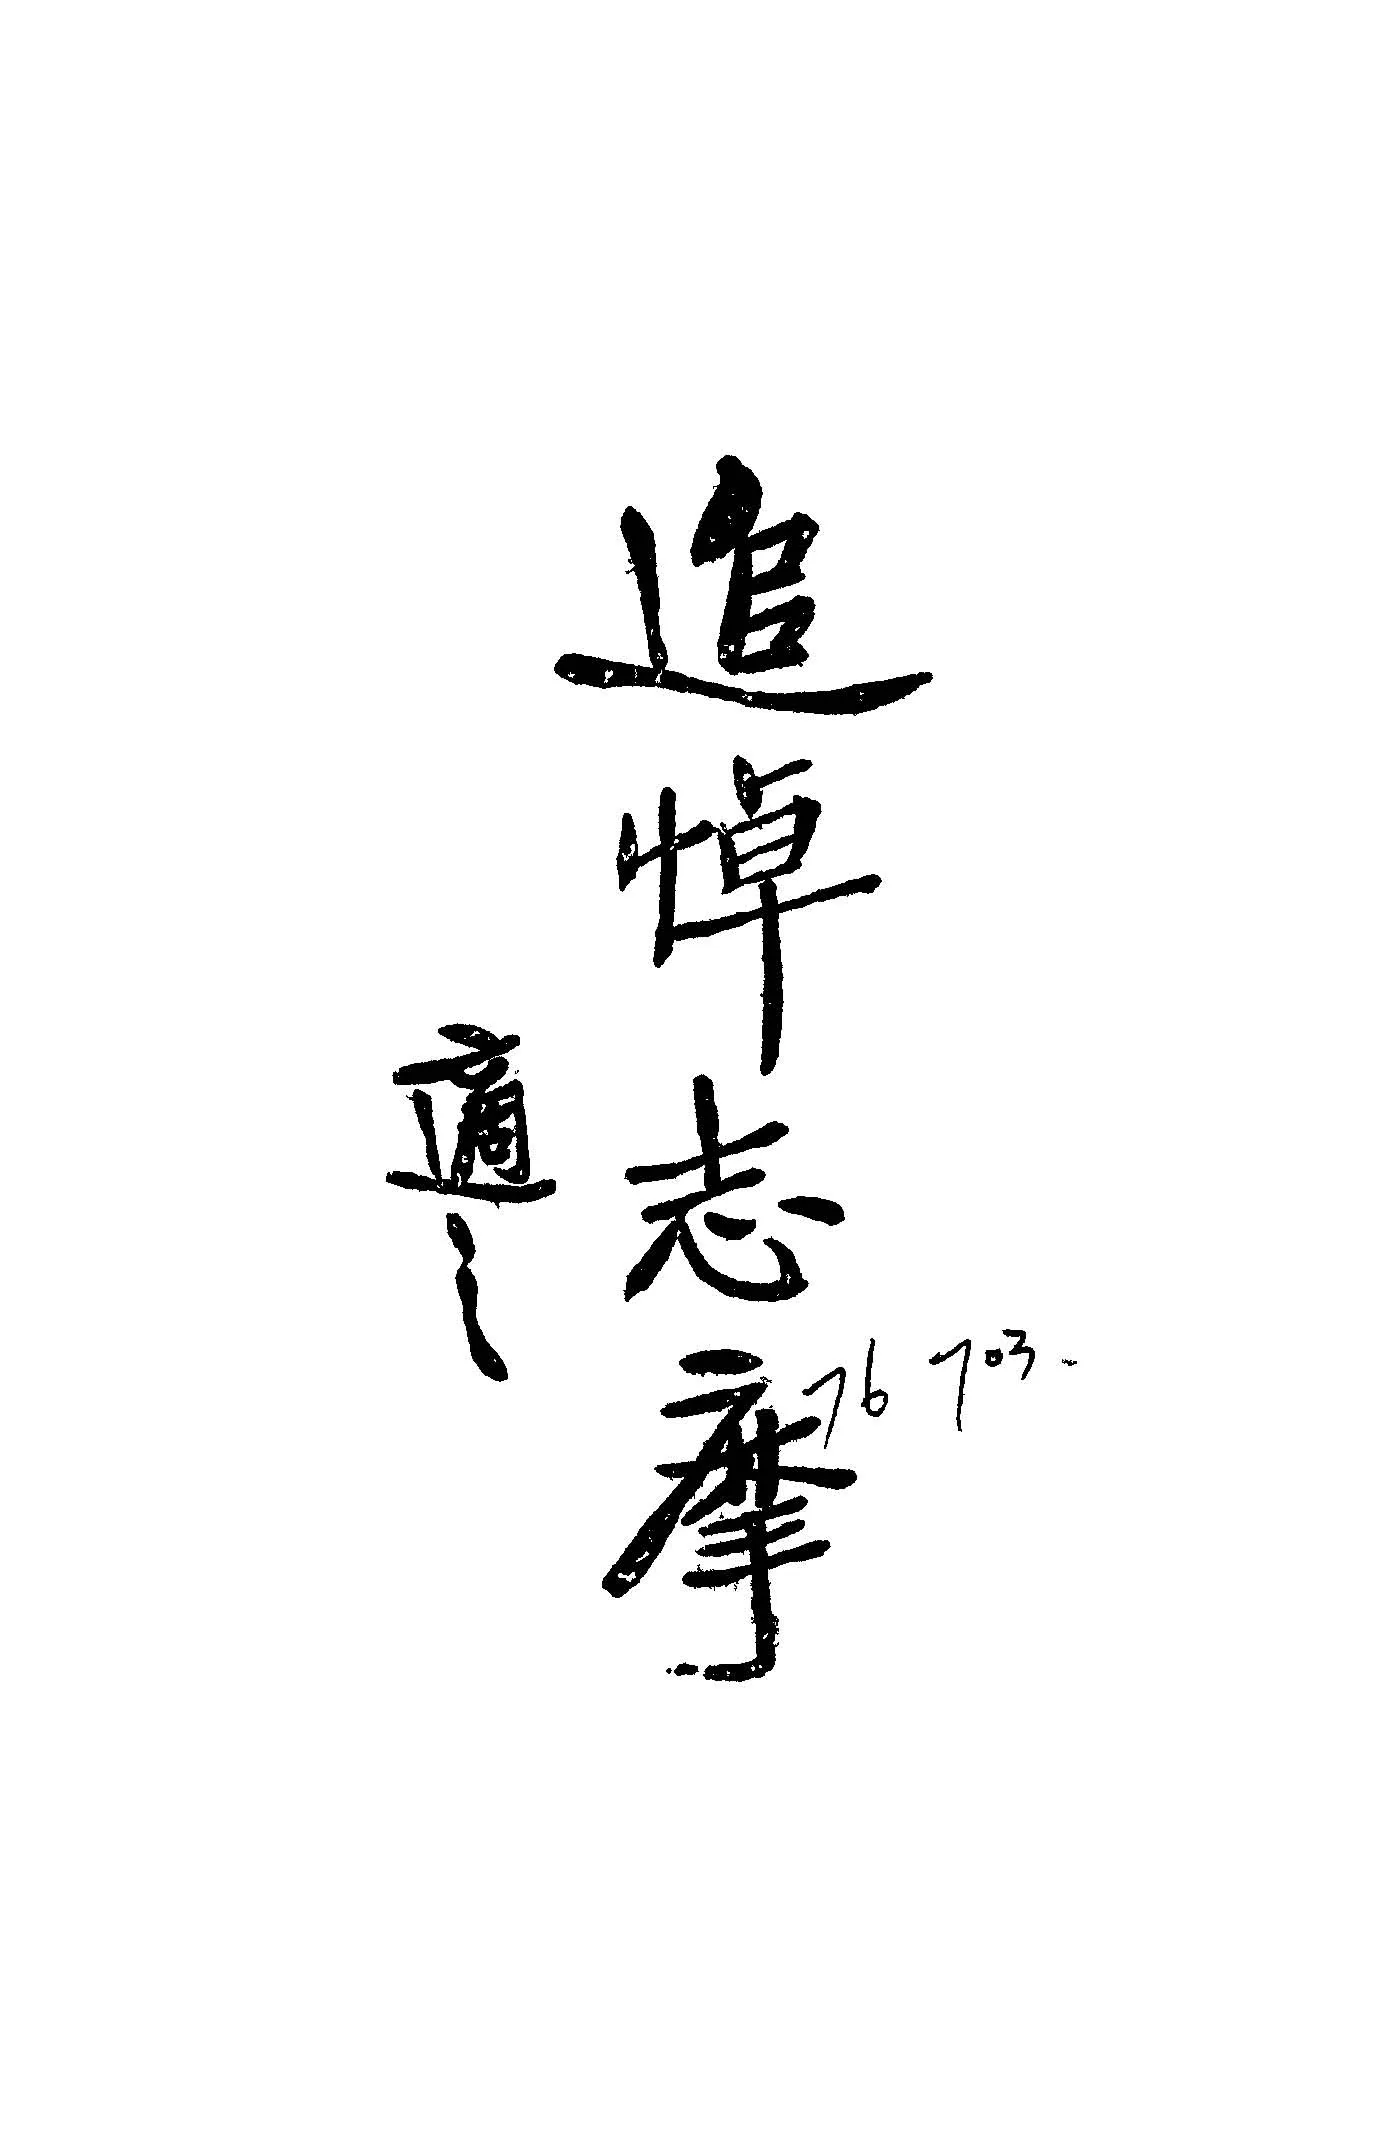 追悼志摩
適之
76 703.